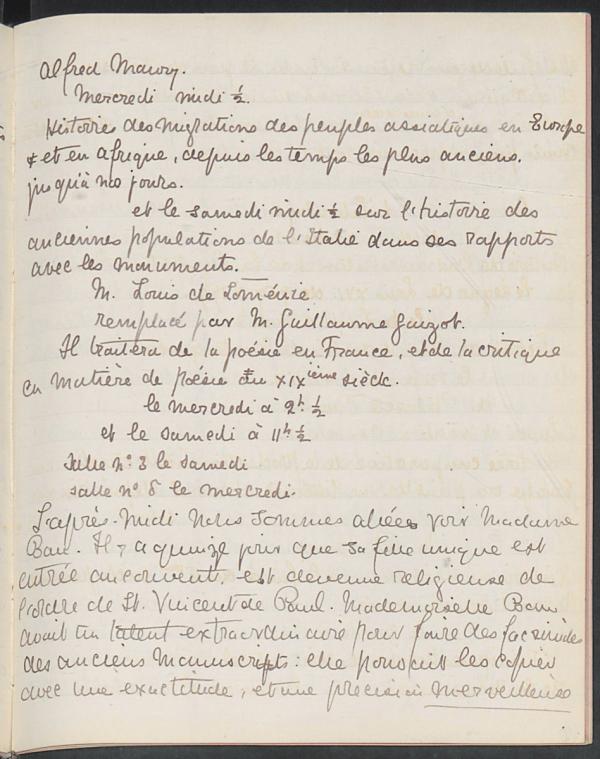 Alfred Maury.
Mercredi midi ½.
Histoire des migrations des peuples assiatiques en Europe
et en Afrique, depuis les temps les plus anciens,
jusqu'à nos jours.
et le samedi midi ½ sur l'histoire des
anciennes populations de l'Italie dans ses rapports
avec les monuments.
M. Louis de Loménie
remplacé par M. Guillaume Guizot.
Il traitera de la poésie en France, et de la critique
en matière de poésie au XIXième siècle.
le mercredi à 2h ½
et le samedi à 11h ½
Salle n° 3 le samedi
salle n° 8 le mercredi.
L'après-midi nous sommes allées voir Madame
Bau. Il y a quinze jour que sa fille unique est
entrée au couvent, est devenue religieuse de
l'ordre de St. Vincent de Paul. Mademoiselle Bau
avait un talent extraordinaire pour faire des facsimiles
des anciens manuscripts: elle pouvait les copier
avec une exactitude, et une précision merveilleuse